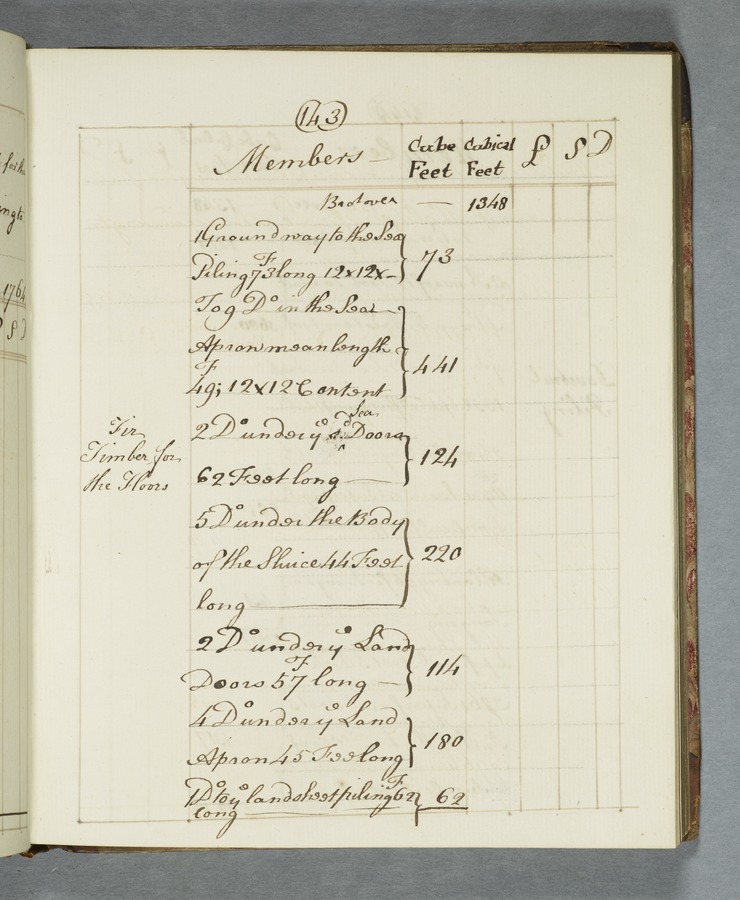 143
Members Cube Feet Cubical Feet £ S D
Brot over — 1348
1 Groundway to the Sea
Piling 73F long 12x12x— 73
To 9 Do in the Sea
Apron mean length
49F; 12x12 Content 441
2 Do under ye sd Sea Doors
62 Feet long — 124
5 Do under the Body
of the Sluice 44 Feet
long — 220
2 Do under ye Land
Doors 57F long — 114
4 Do under ye Land
Apron 45 Feet long 180
1 Do to ye land sheet piling 62F
long — 62
Fir
Timber for
the Floors
for the
1764
S D